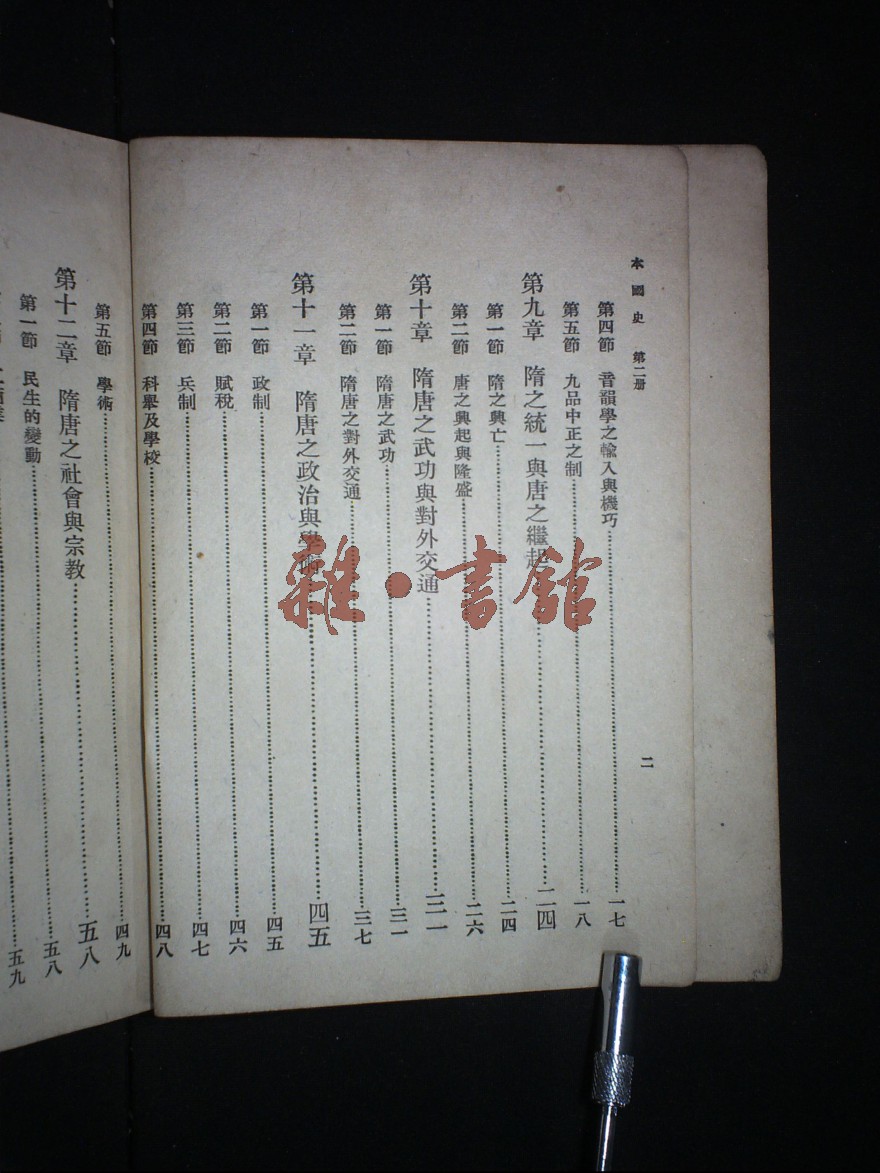 本國史 第二册
二
第四節 音韻學之輸入與機巧 一七
第五節 九品中正之制 一八
第九章 隋之統一與唐之繼起 二四
第一節 隋之興亡 二四
第二節 唐之興起與隆盛 二六
第十章 隋唐之武功與對外交通 三一
第一節 隋唐之武功 三一
第二節 隋唐之對外交通 三七
第十一章 隋唐之政治與學術 四五
第一節 政制 四五
第二節 賦稅 四六
第三節 兵制 四七
第四節 科舉及學校 四八
第五節 學術 四九
第十二章 隋唐之社會與宗教 五八
第一節 民生的變動 五八
五九
雜·書館